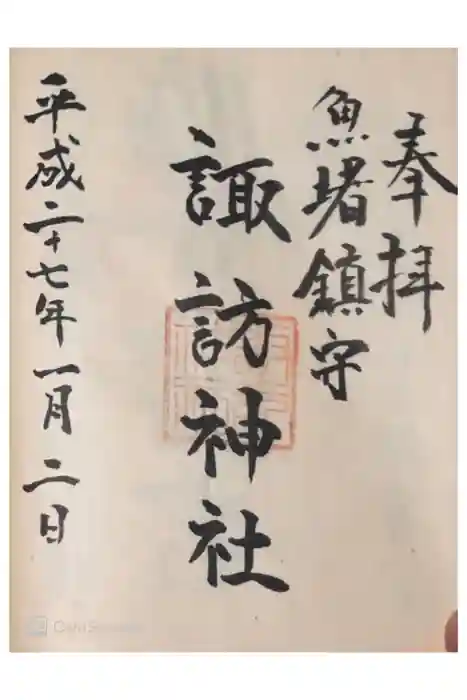 奉拝
魚堵鎮守
諏訪神社
平成二十七年一月二日
CamScanner